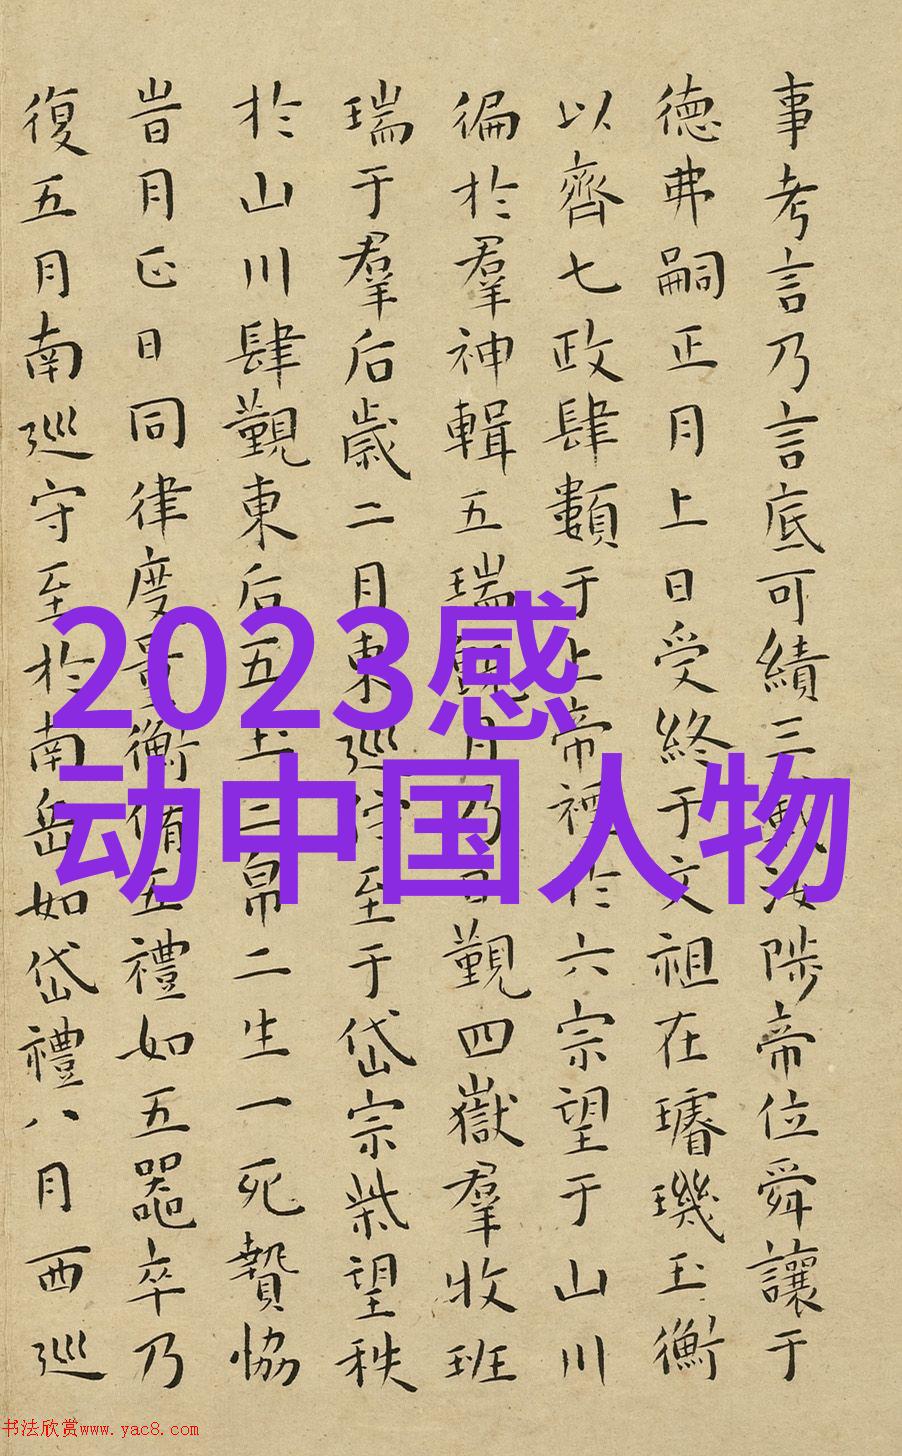 事考言乃言底可績三載汝陟帝位舜讓于
德弗嗣正月上日受終于文祖在璿璣玉衡
以齊七政肆類于上帝禋於六宗望于山川
徧於羣神輯五瑞既月乃日覲四嶽羣牧班
瑞于羣后歲二月東巡守至于岱宗柴望秩
於山川肆覲東后五玉三帛二生一死贄協
旹月正日同律度量衡脩五禮如五器卒乃
復五月南巡守至於南岳如岱禮八月西巡
2023感
动中国人物
书法欣赏www.yac8.com